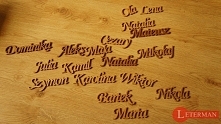 Ola Lena
Natalia
Mateusz
Cezary
Dominika Aleks Maja Natalia
Julia Kamil Mikołaj
Szymon Karolina Wiktor
Bartek Nikola
Maria
LETERMAN